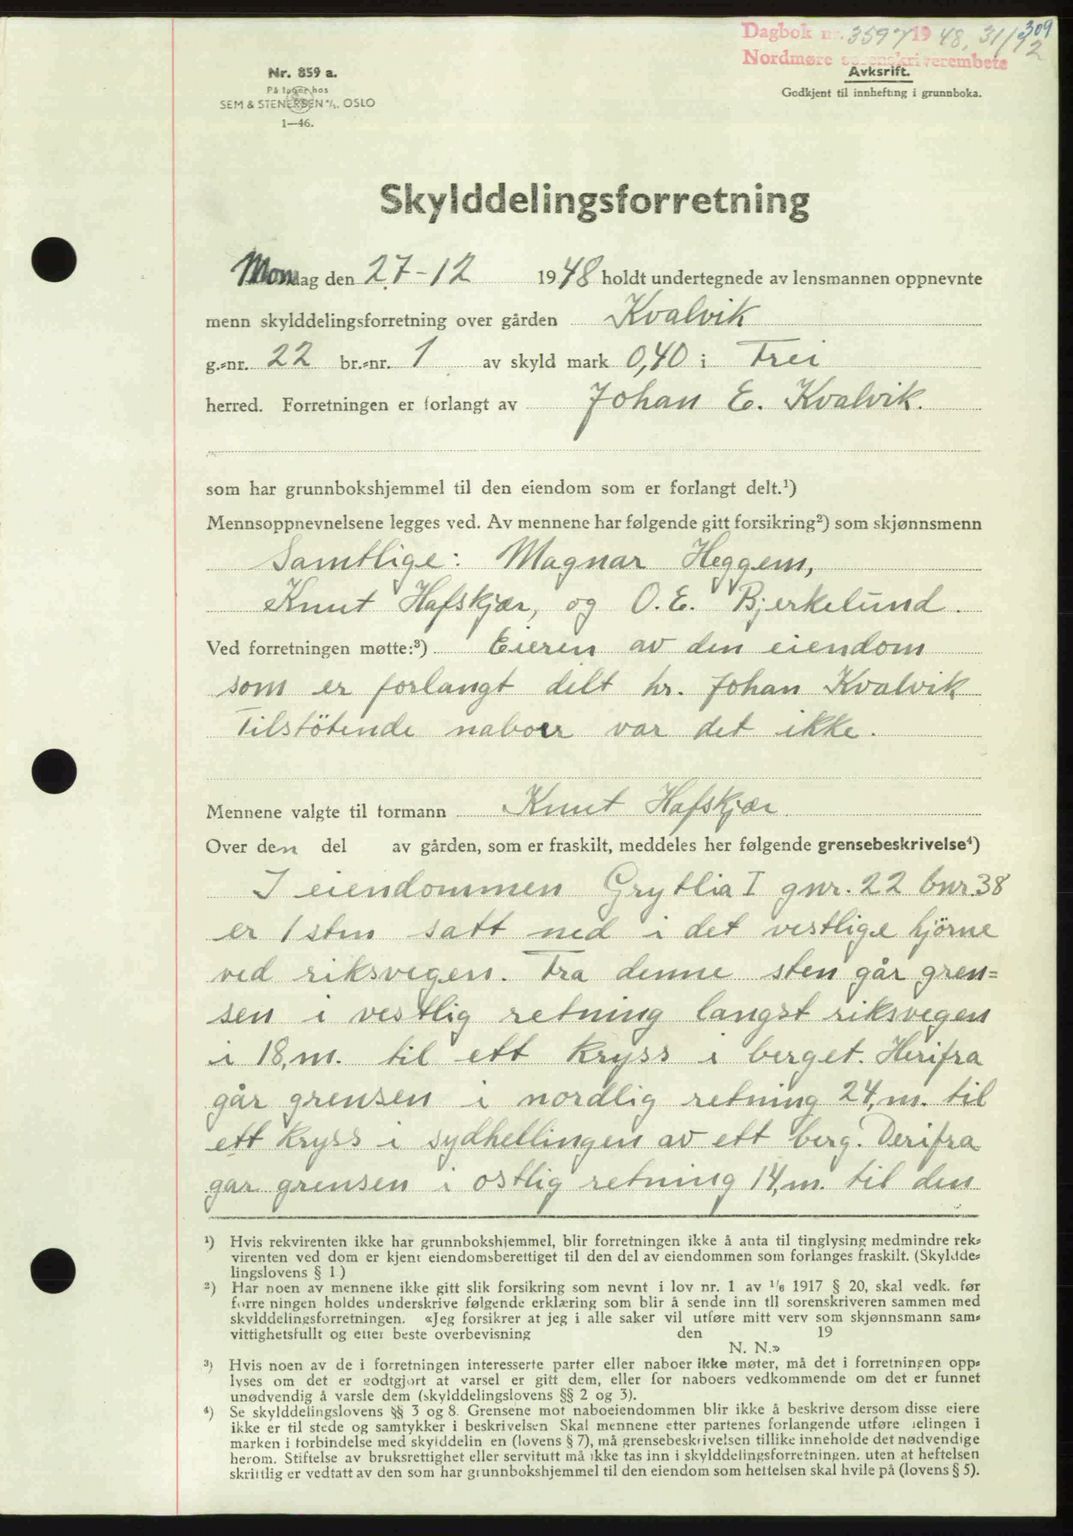 309
Dagbok nr. 3597 1948, 31/12
Nordmøre sorenskriverembete
Nr. 859 a.
På lager hos
SEM & STENERSEN A/S. OSLO
1—46.
Avksrift.
Godkjent til innhefting i grunnboka.
Skylddelingsforretning
Mondag den 27-12 1948 holdt undertegnede av lensmannen oppnevnte
menn skylddelingsforretning over gården Kvalvik
g.=nr. 22 br.=nr. 1 av skyld mark 0,40 i Frei
herred. Forretningen er forlangt av Johan E. Kvalvik.
som har grunnbokshjemmel til den eiendom som er forlangt delt.¹)
Mennsoppnevnelsene legges ved. Av mennene har følgende gitt forsikring²) som skjønnsmenn
Samtlige: Magnar Heggem,
Knut Hafskjær, og O. E. Bjerkelund.
Ved forretningen møtte:³) Eieren av den eiendom
som er forlangt delt hr. Johan Kvalvik
Tilstötende naboer var det ikke.
Mennene valgte til formann Knut Hafskjær.
Over den del av gården, som er fraskilt, meddeles her følgende grensebeskrivelse⁴)
I eiendommen Grytlia I gnr. 22 bnr. 38
er 1 sten satt ned i det vestlige hjörne
ved riksvegen. Fra denne sten går gren=
sen i vestlig retning langst riksvegen
i 18,m. til ett kryss i berget. Herifra
går grensen i nordlig retning 24,m. til
ett kryss i sydhellingen av ett berg. Derifra
går grensen i ostlig retning 14,m. til den
¹) Hvis rekvirenten ikke har grunnbokshjemmel, blir forretningen ikke å anta til tinglysing medmindre rek=
virenten ved dom er kjent eiendomsberettiget til den del av eiendommen som forlanges fraskilt. (Skyldde=
lingslovens § 1.)
²) Har noen av mennene ikke gitt slik forsikring som nevnt i lov nr. 1 av 1/6 1917 § 20, skal vedk. før
forretningen holdes underskrive følgende erklæring som blir å sende inn til sorenskriveren sammen med
skylddelingsforretningen. «Jeg forsikrer at jeg i alle saker vil utføre mitt verv som skjønnsmann sam=
vittighetsfullt og etter beste overbevisning den 19
N. N.»
³) Hvis noen av de i forretningen interesserte parter eller naboer ikke møter, må det i forretningen opp=
lyses om det er godtgjort at varsel er gitt dem, eller for naboers vedkommende om det er funnet
unødvendig å varsle dem (skylddelingslovens §§ 2 og 3).
⁴) Se skylddelingslovens §§ 3 og 8. Grensene mot naboeiendommen blir ikke å beskrive dersom disse eiere
ikke er til stede og samtykker i beskrivelsen Skal mennene etter partenes forlangende utføre delingen i
marken i forbindelse med skylddelingen (lovens § 7), må grensebeskrivelsen tillike inneholde det nødvendige
herom. Stiftelse av bruksrettighet eller servitutt må ikke tas inn i skylddelingsforretningen. uten at heftelsen
skriftlig er vedtatt av den som har grunnbokshjemmel til den eiendom som heftelsen skal hvile på (lovens § 5).